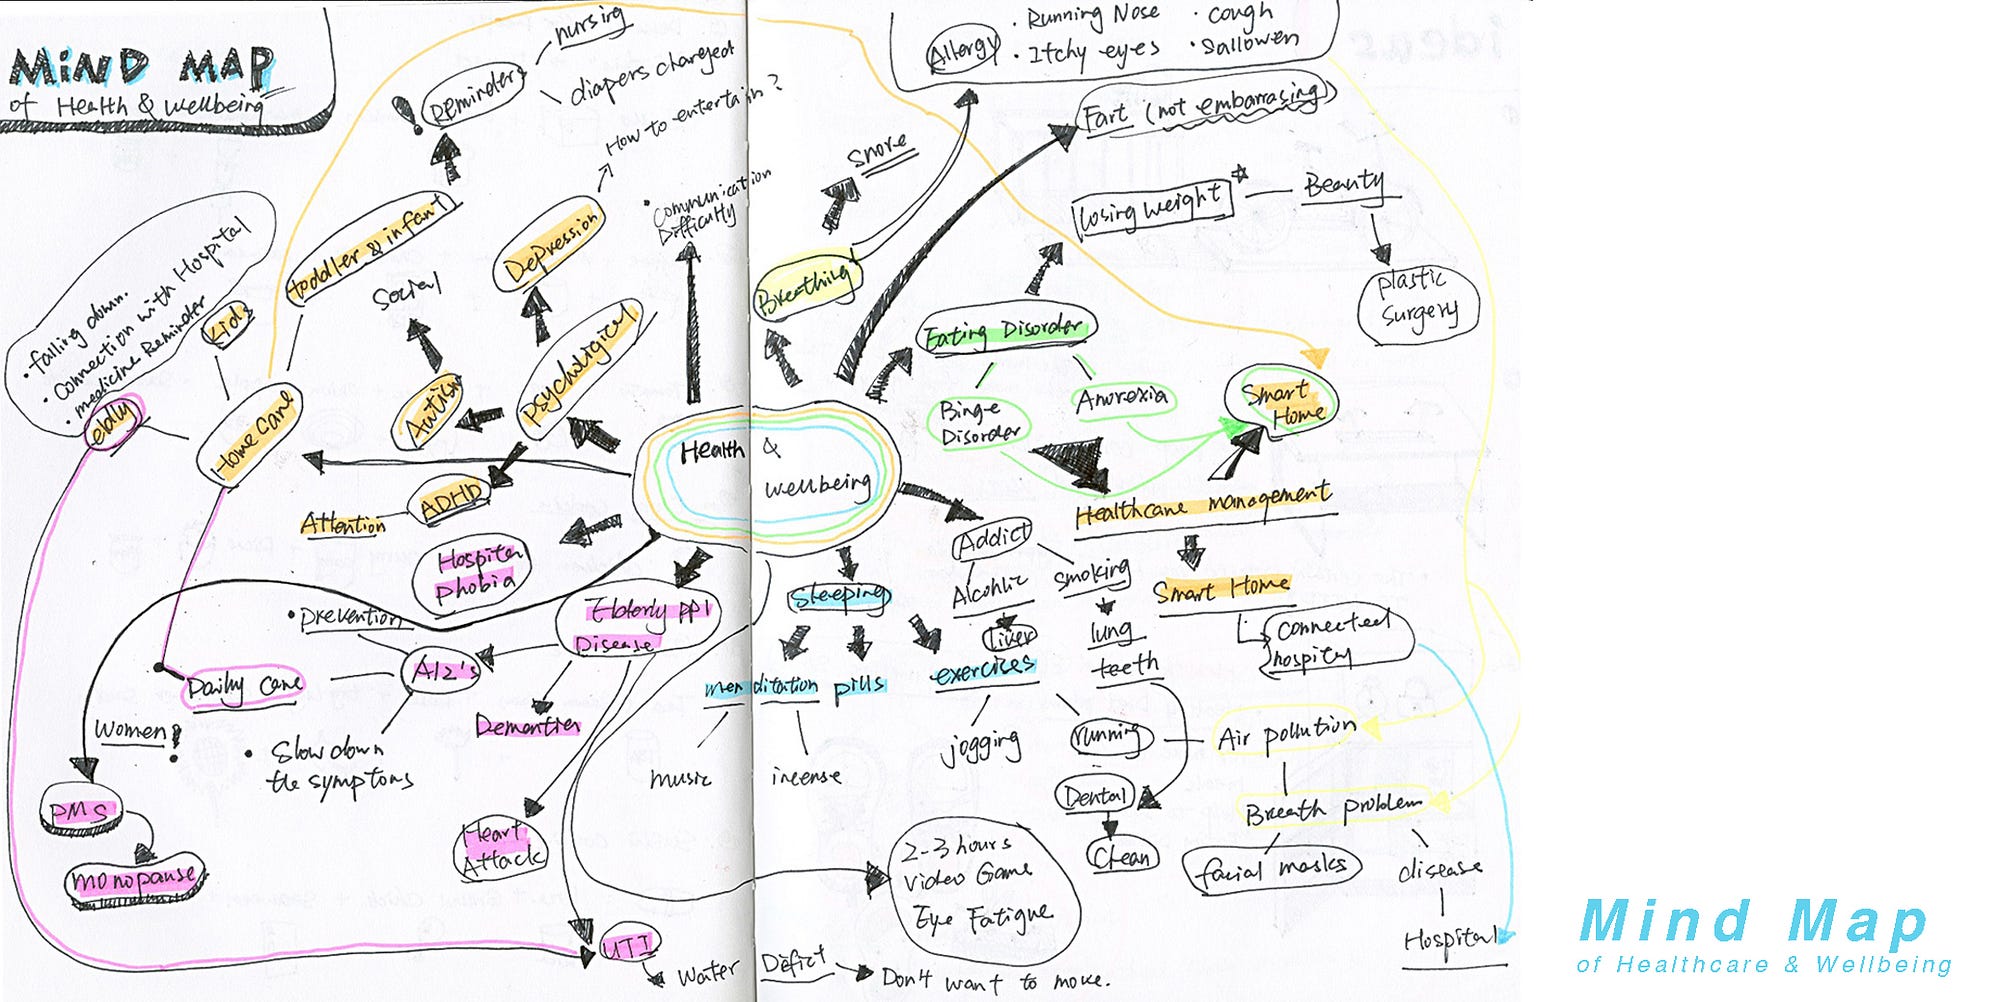 MiND MAP
of Health & Wellbeing
nursing
Reminders
!
diapers changed
How to entertain?
toddler & infant
Social
Depression
• Communication
Difficulty
• falling down.
• Connection with Hospital
• medicine Reminder
kids
eldly
Home Care
Autism
psychologicial
ADHD
Attention
Hospital
phobia
Health &
wellbeing
Elderly ppl
Disease
• Prevention
Alz's
Daily Care
Women!
• Slow down
the symptoms
Dementia
PMS
monopause
Heart
Attack
UTI
Water
Allergy
• Running Nose • cough
• Itchy eyes • Sallowen
Fart (not embarrasing)
Snore
Breathing
losing weight
Beauty
plastic
surgery
Eating Disorder
Binge
Disorder
Anorexia
Smart
Home
Healthcare management
Smart Home
Connected
hospity
Addict
Alcohlic
smoking
liver
lung
teeth
Sleeping
men ditation
pills
exercices
music
incense
jogging
running
Air pollution
Dental
Clean
Breath problem
facial masks
disease
Hospital
2-3 hours
video Game
Eye Fatigue
Deficit
Don't want to move.
Mind Map
of Healthcare & Wellbeing